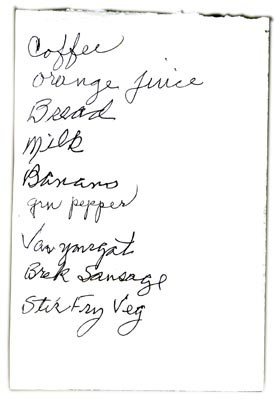 Coffee
Orange Juice
Bread
Milk
Banano
grn pepper
Van yourgat
Brek Sausage
Stir Fry Veg